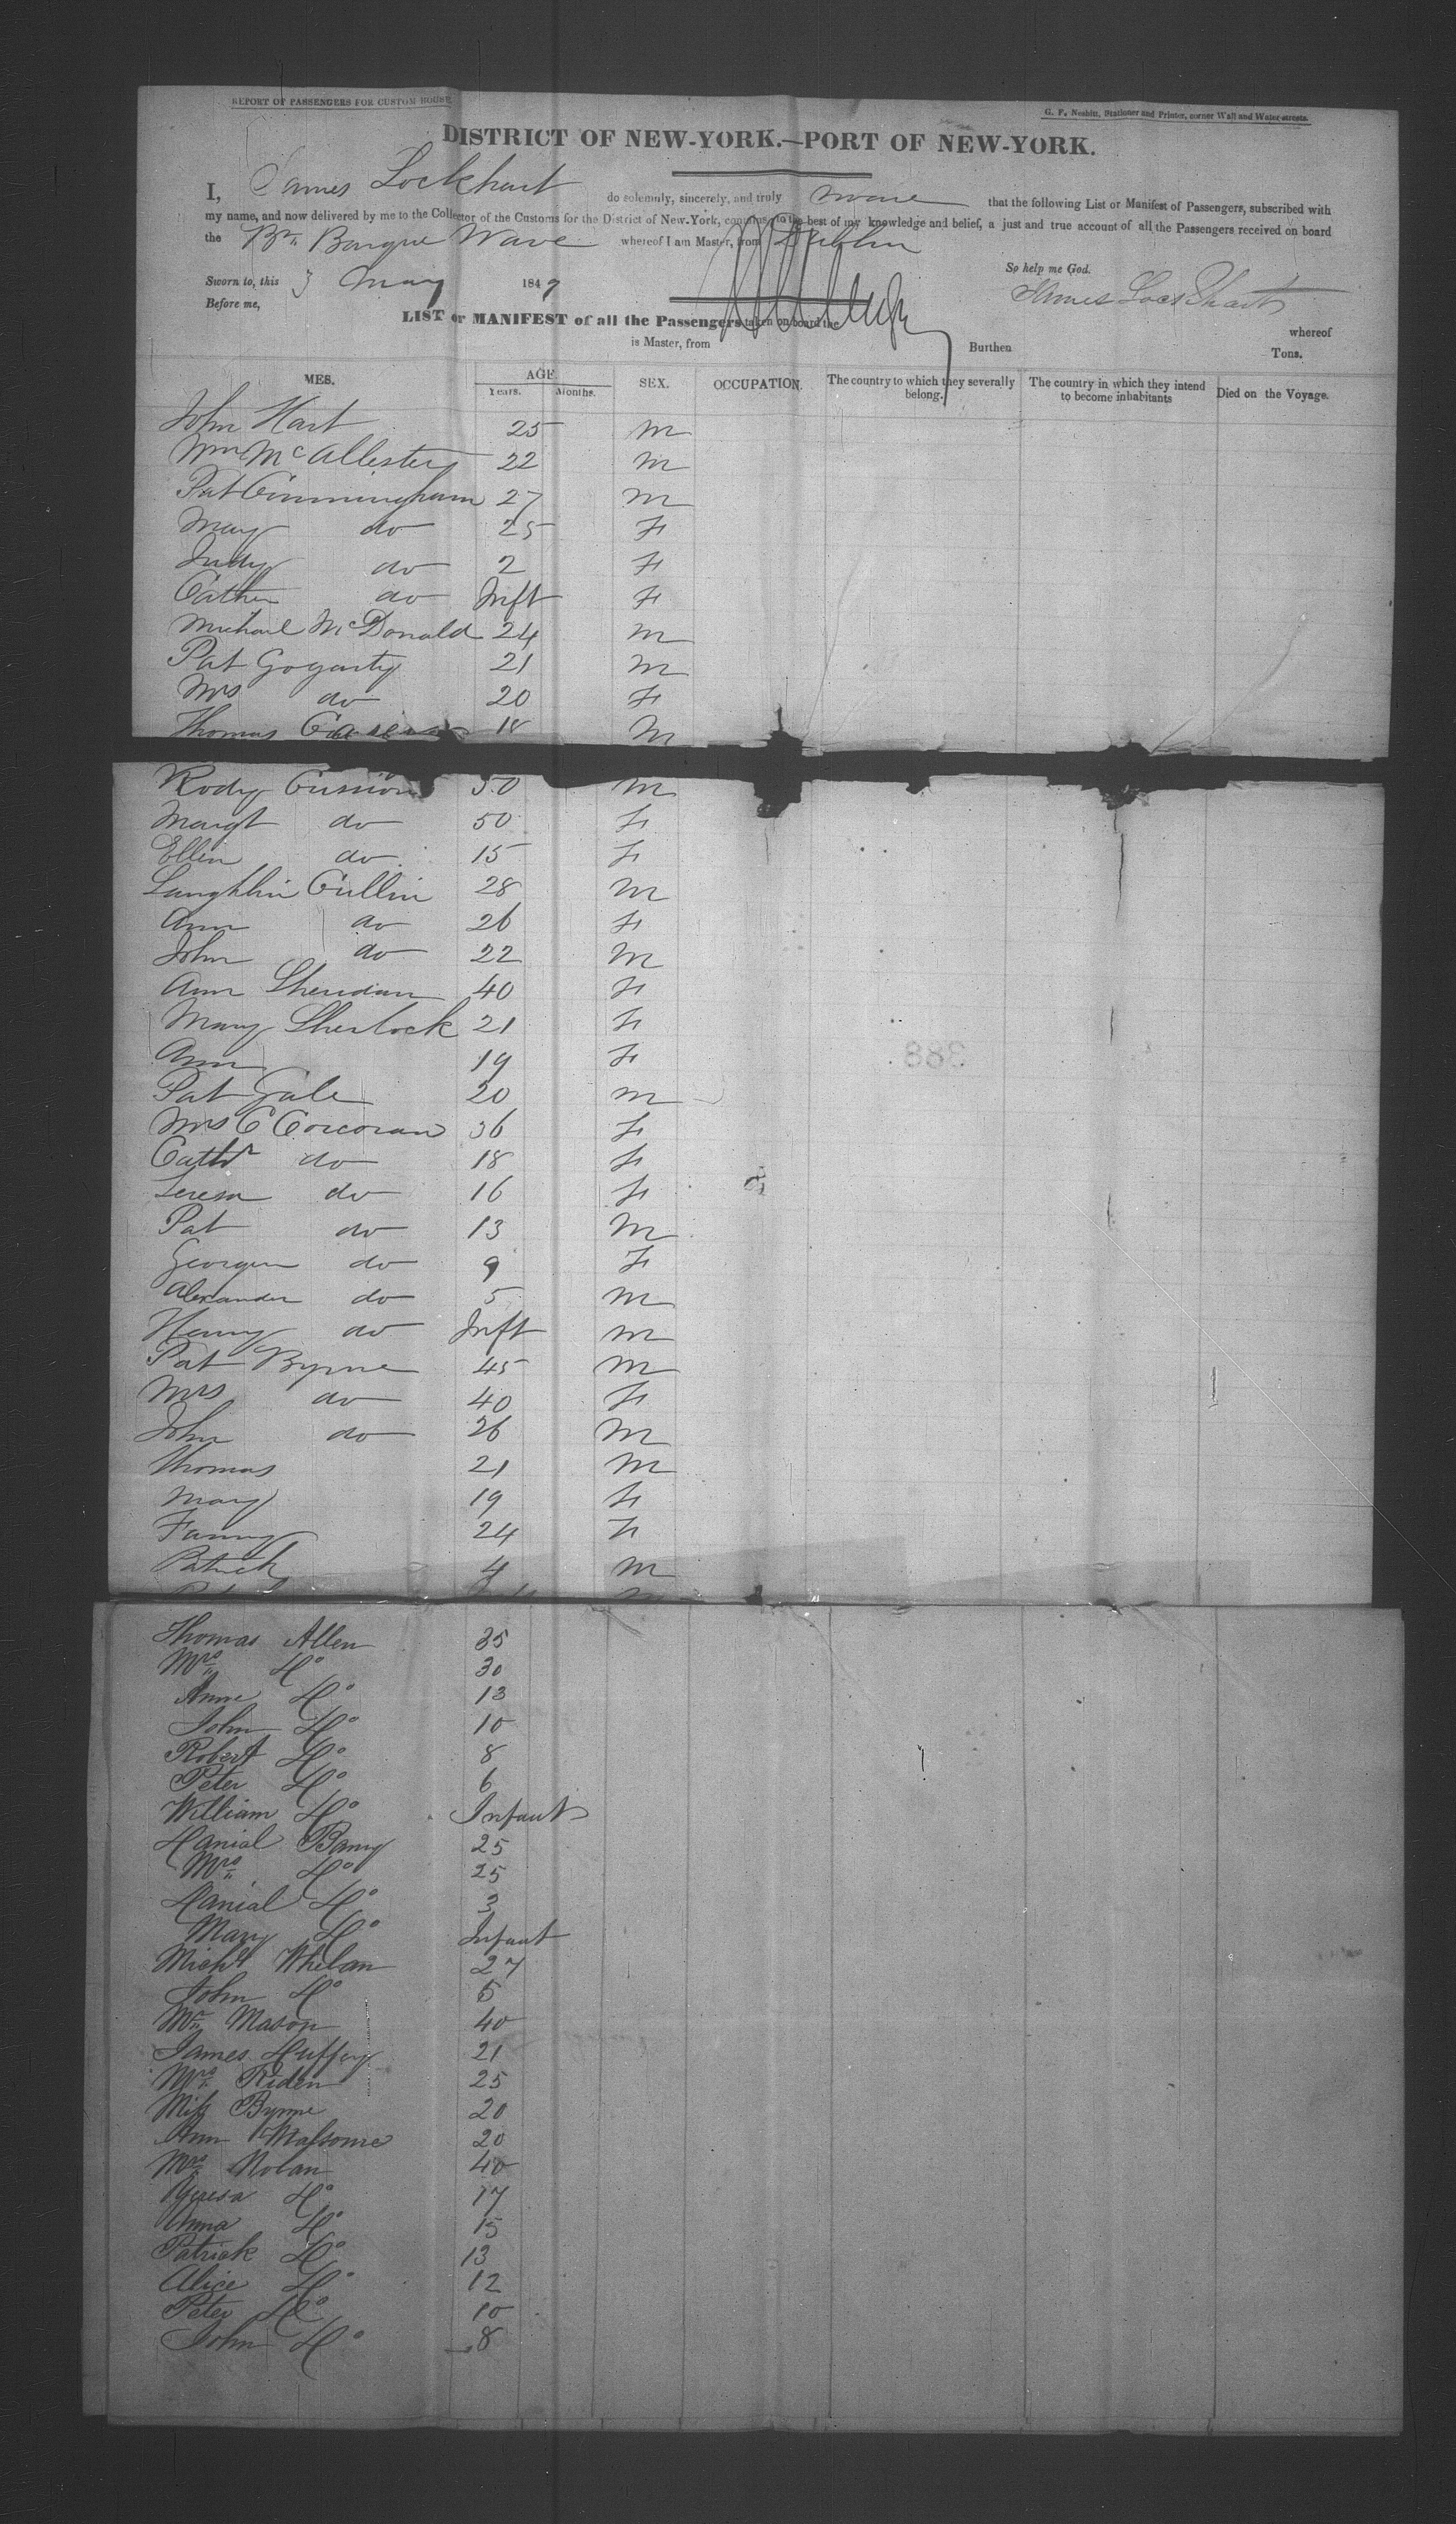 REPORT OF PASSENGERS FOR CUSTOM HOUSE.
G. F. Nesbitt, Stationer and Printer, corner Wall and Water-streets.
DISTRICT OF NEW-YORK.—PORT OF NEW-YORK.
I, James Lockhart do solemnly, sincerely, and truly swear that the following List or Manifest of Passengers, subscribed with
my name, and now delivered by me to the Collector of the Customs for the District of New-York, contains, to the best of my knowledge and belief, a just and true account of all the Passengers received on board
the Brn Barque Wave whereof I am Master, from Dublin
Sworn to, this 3 May 1847 So help me God.
Before me, James Lockhart
LIST or MANIFEST of all the Passengers taken on board the whereof
is Master, from Burthen Tons.
MES. AGE. Years. Months. SEX. OCCUPATION. The country to which they severally belong. The country in which they intend to become inhabitants Died on the Voyage.
John Hart 25 M
Wm McAllester 22 M
Pat Cunningham 27 M
Mary do 25 F
Judy do 2 F
Cathn do Inft F
Michael McDonald 24 M
Pat Gogarty 21 M
Mrs do 20 F
Thomas 18 M
Rody Cussion 50 M
Margt do 50 F
Ellen do 15 F
Laughlin Cullin 28 M
Ann do 26 F
John do 22 M
Ann Sheridan 40 F
Mary Sherlock 21 F
Ann 19 F
Pat Gale 20 M
Mrs C Corcoran 36 F
Cathr do 18 F
Teresa do 16 F
Pat do 13 M
Georgen do 9 F
Alexander do 5 M
Henry do Inft M
Pat Byrne 45 M
Mrs do 40 F
John do 26 M
Thomas 21 M
Mary 19 F
Fanny 24 F
Patrick 4 M
388
Thomas Allen 35
Mrs Do 30
Anne Do 13
John Do 10
Robert Do 8
Peter Do 6
William Do Infant
Danial Barry 25
Mrs Do 25
Danial Do 3
Mary Do Infant
Michl Whelan 27
John Do 5
Mr Mason 40
James Duffey 21
Mrs Riden 25
Miss Byrne 20
Ann Malsome 20
Mrs Nolan 40
Teresa Do 17
Anna Do 15
Patrick Do 13
Alice Do 12
Peter Do 10
John Do 8